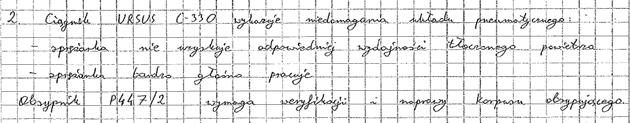 2. Ciągnik URSUS C-330 wykazuje niedomagania układu pneumatycznego:
- sprężarka nie uzyskuje odpowiedniej wydajności tłoczonego powietrza
- sprężarka bardzo głośno pracuje
Obsypnik P447/2 wymaga weryfikacji i naprawy korpusu obsypującego.